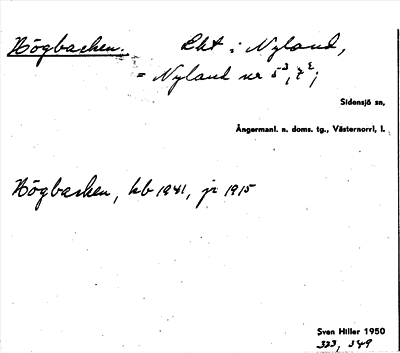 Högbacken. Lht i Nyland,
= Nyland nr 5³, 7²;
Sidensjö sn,
Ångermanl. n. doms. tg., Västernorrl, l.
Högbacken, kb 1941, jr 1915
Sven Hiller 1950
333, 349